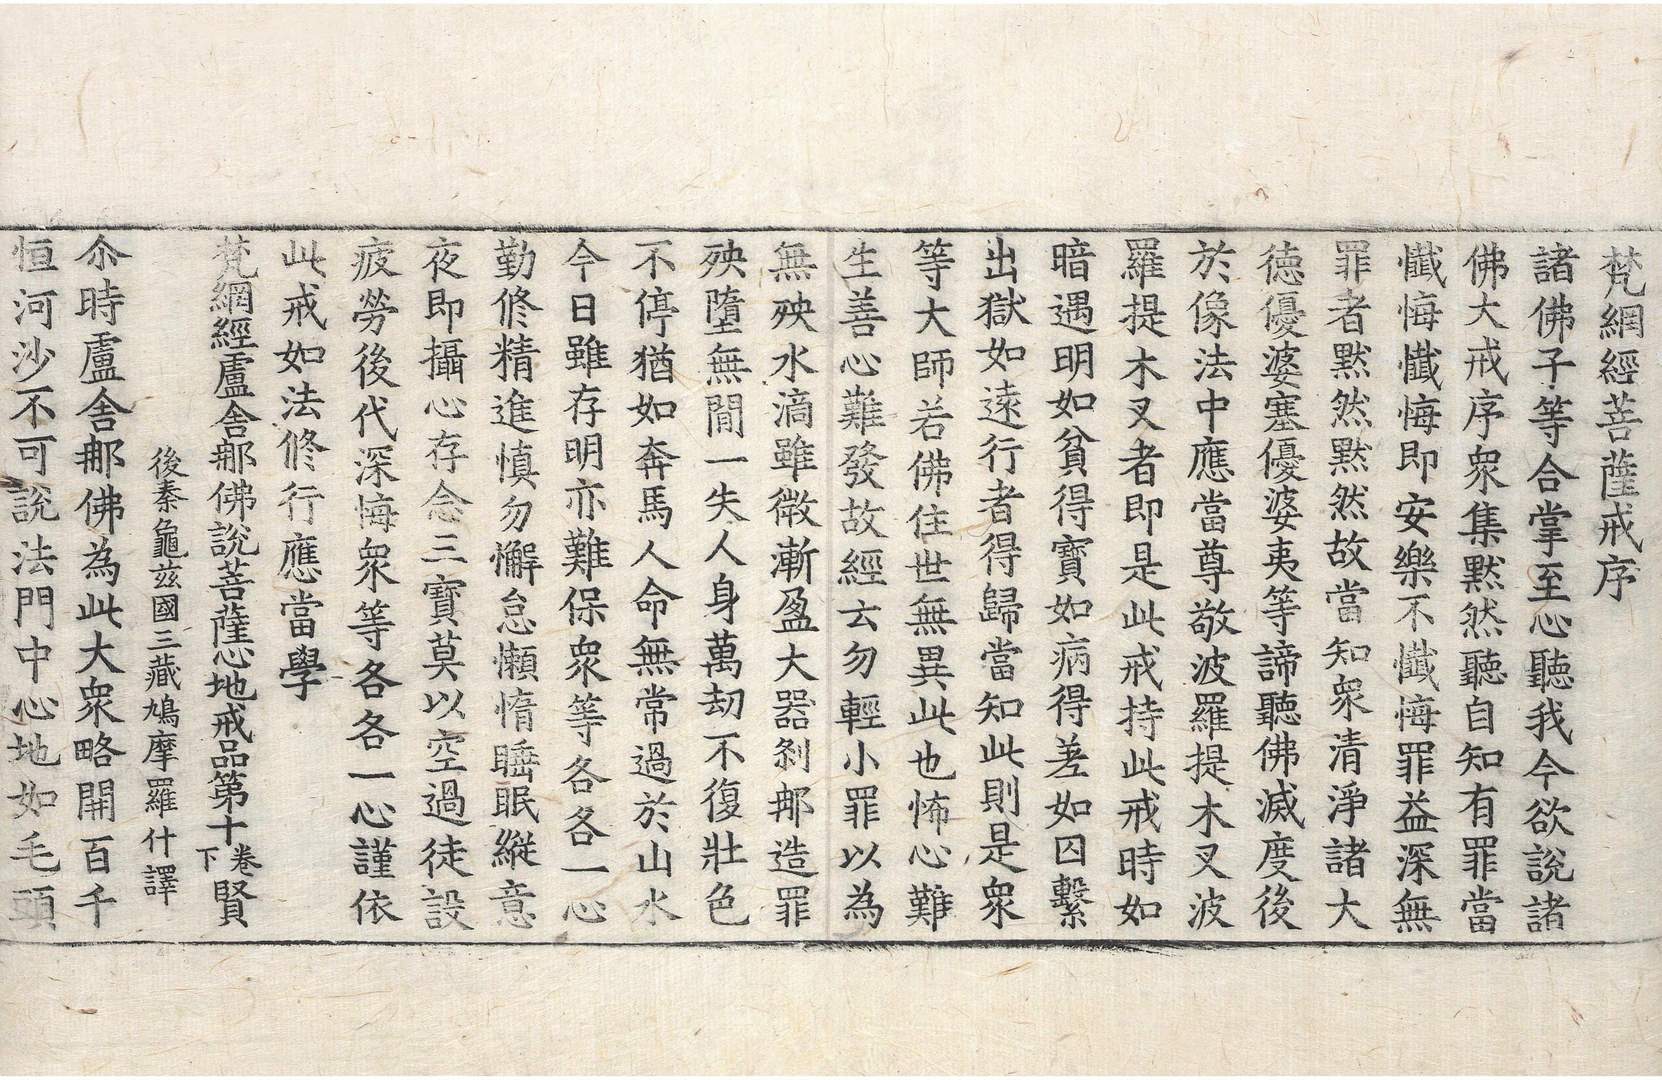 梵網經菩薩戒序
諸佛子等合掌至心聽我今欲說諸
佛大戒序衆集黙然聽自知有罪當
懺悔懺悔即安樂不懺悔罪益深無
罪者黙然黙然故當知衆清淨諸大
德優婆塞優婆夷等諦聽佛滅度後
於像法中應當尊敬波羅提木叉波
羅提木叉者即是此戒持此戒時如
暗遇明如貧得寶如病得差如囚繫
出獄如遠行者得歸當知此則是衆
等大師若佛住世無異此也怖心難
生善心難發故經云勿輕小罪以為
無殃水滴雖微漸盈大器剎那造罪
殃墮無間一失人身萬劫不復壯色
不停猶如奔馬人命無常過於山水
今日雖存明亦難保衆等各各一心
勤修精進慎勿懈怠懶惰睡眠縱意
夜即攝心存念三寶莫以空過徒設
疲勞後代深悔衆等各各一心謹依
此戒如法修行應當學
梵網經盧舍那佛說菩薩心地戒品第十卷下賢
後秦龜茲國三藏鳩摩羅什譯
尒時盧舍那佛為此大衆略開百千
恒河沙不可說法門中心地如毛頭